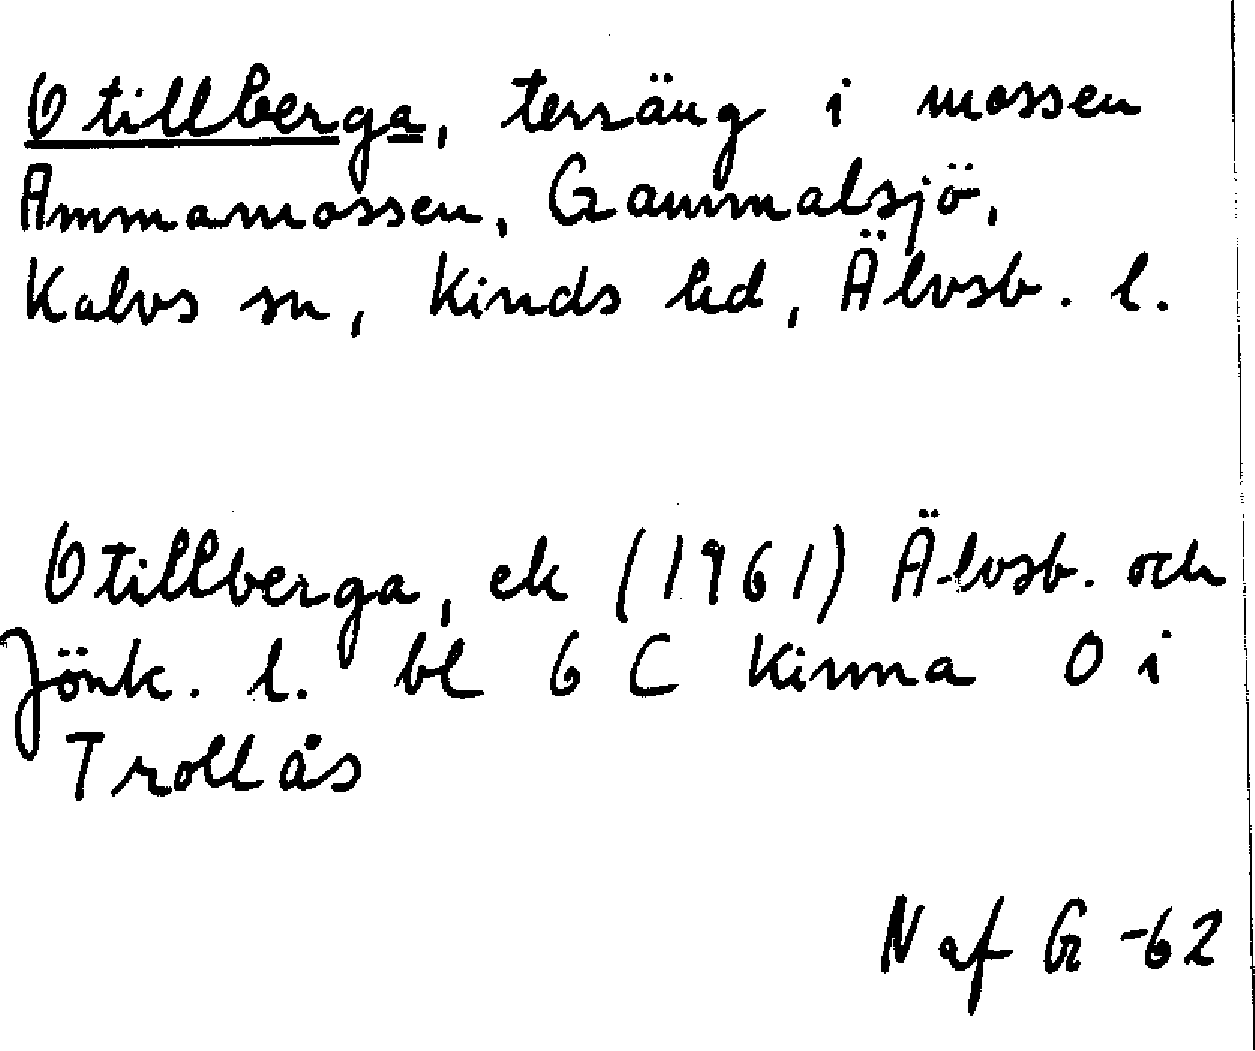 Otillberga, terräng i mossen
Ammamossen, Gammalsjö,
Kalvs sn, Kinds hd, Älvsb. l.
Otillberga, ek (1961) Älvsb. och
Jönk. l. bl 6 C Kinna O i
Trollås
N af G -62